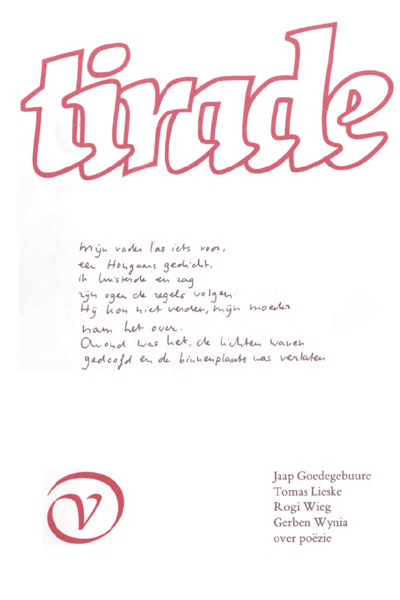 tirade
Mijn vader las iets voor,
een Hongaars gedicht,
ik luisterde en zag
zijn ogen de regels volgen.
Hij kon niet verder, mijn moeder
nam het over.
Avond was het, de lichten waren
gedoofd en de binnenplaats was verlaten
V
Jaap Goedegebuure
Tomas Lieske
Rogi Wieg
Gerben Wynia
over poëzie